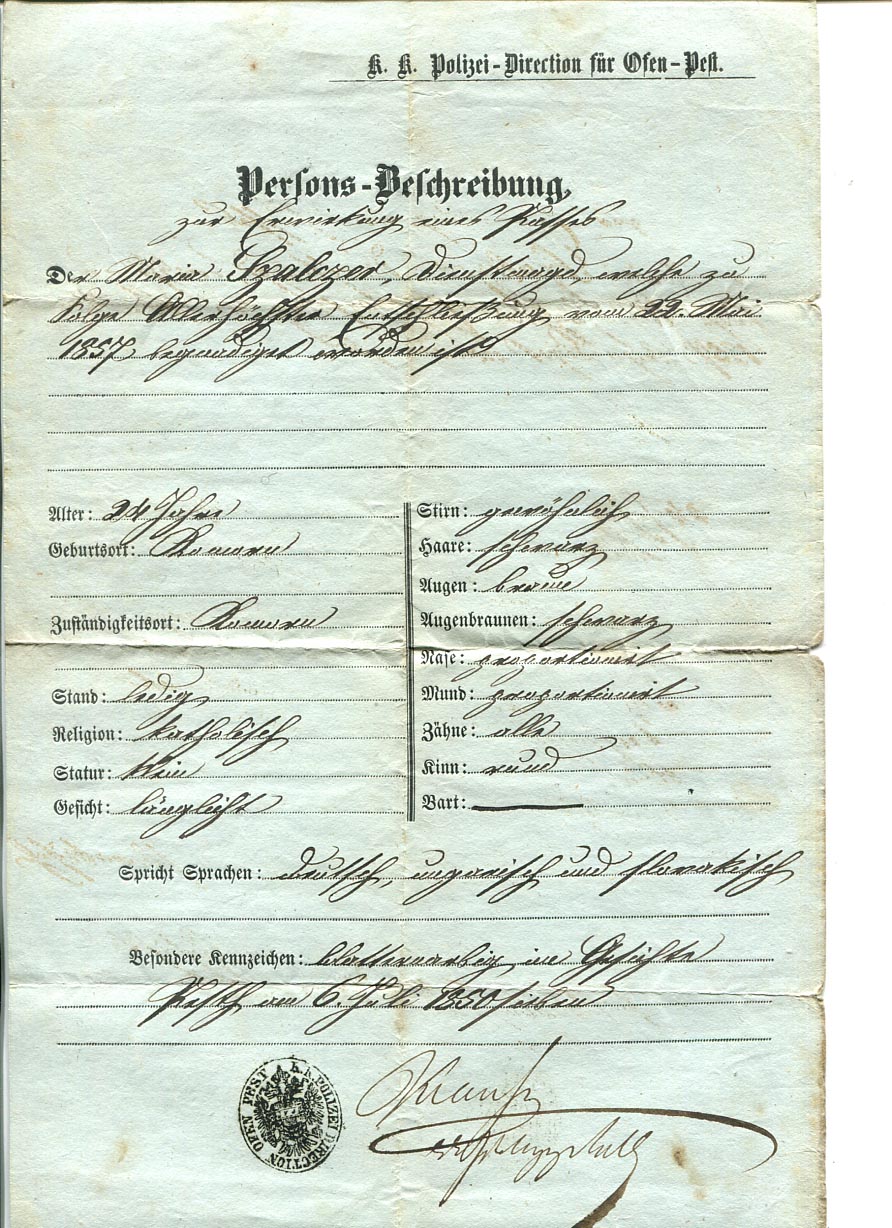 K. K. Polizei-Direction für Ofen-Pest.
Persons-Beschreibung,
zur Erwirkung eines Passes
Der Maria Szalczer, Dienstmagd, welche zu
Folge Allerhöchster Entschließung vom 22. Mai
1857 begnadiget worden ist
Alter: 24 Jahre
Geburtsort: Komorn
Zuständigkeitsort: Komorn
Stand: ledig
Religion: katholisch
Statur: klein
Gesicht: länglicht
Stirn: gewöhnlich
Haare: schwarz
Augen: braun
Augenbraunen: schwarz
Nase: proportionirt
Mund: proportionirt
Zähne: alle
Kinn: rund
Bart:
Spricht Sprachen: deutsch, ungarisch und slovakisch
Besondere Kennzeichen: blatternarbig im Gesichte
Pesth am 6. Juli 1850 sieben
K. K. POLIZEI DIRECTION OFEN PEST